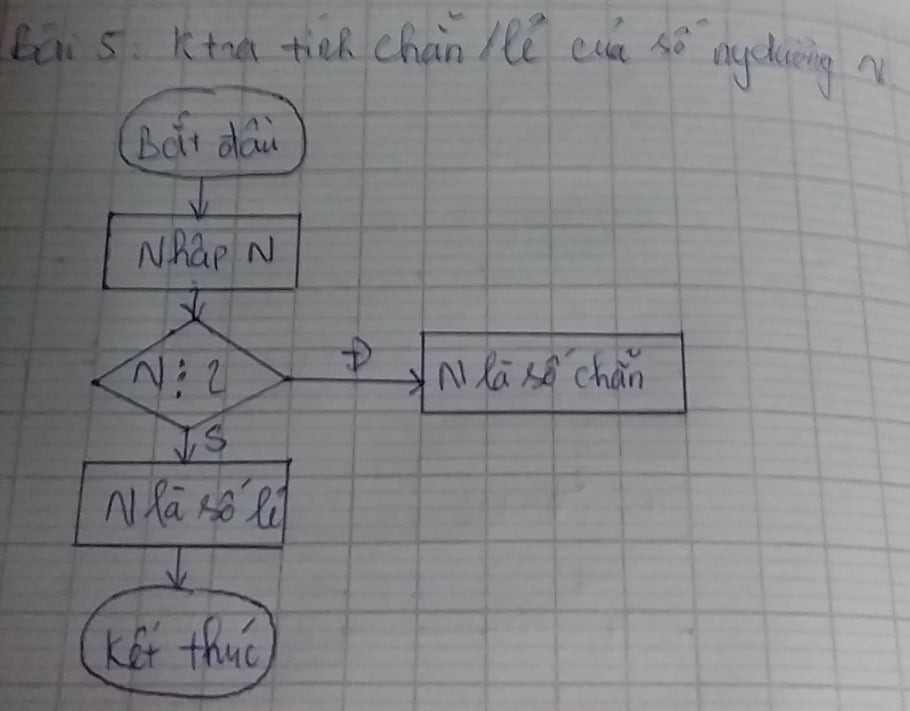 Bài 5. Ktra tính chẵn/lẻ của số ngdương N
Bắt đầu
Nhập N
N⋮2
Đ
N là số chẵn
S
N là số lẻ
Kết thúc